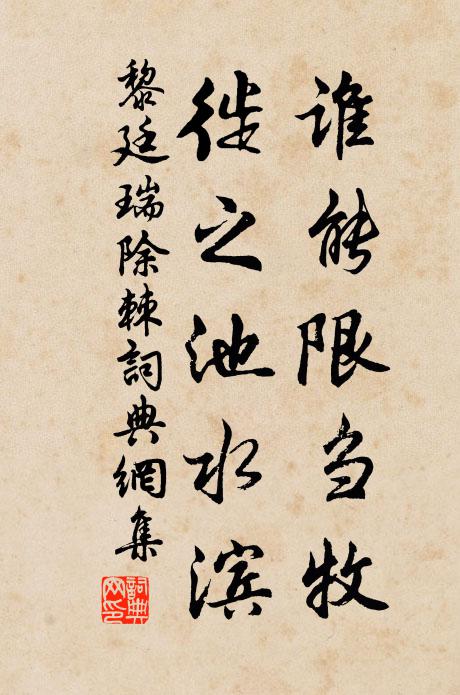 谁能限刍牧
徙之池水滨
黎廷瑞除棘詞典網集
詞典网印